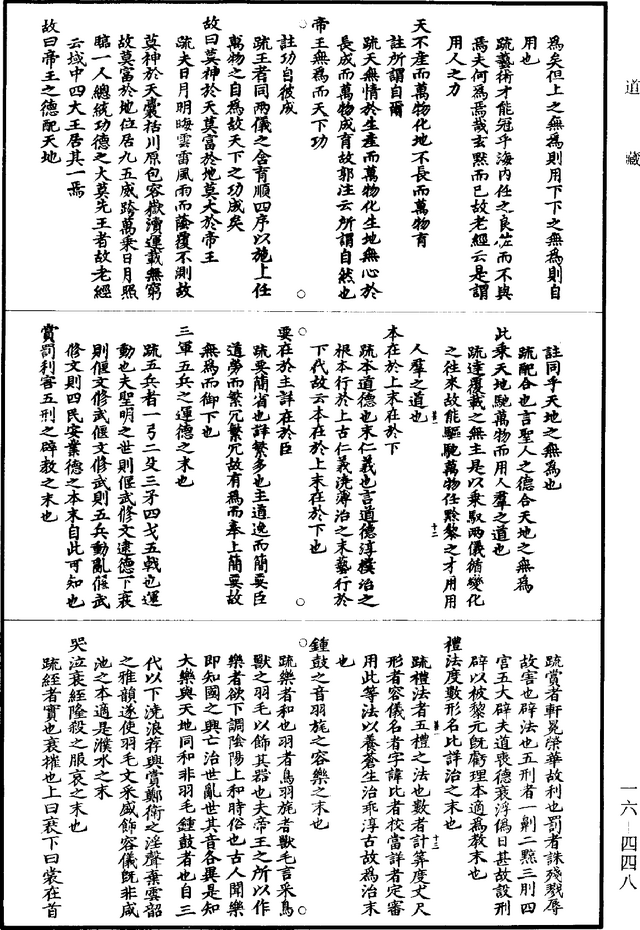 道藏
爲矣但上之無爲則用下下之無爲則自
用也
疏藝術才能冠乎海内任之良佐而不與
焉夫何爲焉哉玄默而已故老經云是謂
用人之力
天不産而萬物化地不長而萬物育
註所謂自爾
疏天無情於生産而萬物化生地無心於
長成而萬物成育故郭注云所謂自然也
帝王無爲而天下功
註功自彼成
疏王者同兩儀之含育順四序以施上任
萬物之自爲故天下之功成矣
故曰莫神於天莫富於地莫大於帝王
疏夫日月明晦雲雷風雨而蔭覆不測故
莫神於天囊括川原包容嶽瀆運載無窮
故莫富於地位居九五威跨萬乘日月照
臨一人總統功德之大莫先王者故老經
云域中四大王居其一焉
故曰帝王之德配天地
註同乎天地之無爲也
疏配合也言聖人之德合天地之無爲
此乘天地馳萬物而用人羣之道也
疏達覆載之無主是以乘馭兩儀循變化
之往來故能驅馳萬物任黔黎之才用用
人羣之道也
十二
本在於上末在於下
疏本道德也末仁義也言道德淳樸治之
根本行於上古仁義澆薄治之末藝行於
下代故云本在於上末在於下也
要在於主詳在於臣
疏要簡省也詳繁多也主道逸而簡要臣
道勞而繁冗繁冗故有爲而奉上簡要故
無爲而御下也
三軍五兵之運德之末也
疏五兵者一弓二殳三矛四戈五戟也運
動也夫聖明之世則偃武修文逮德下衰
則偃文修武偃文修武則五兵動亂偃武
修文則四民安業德之本末自此可知也
賞罰利害五刑之辟教之末也
疏賞者軒冕榮華故利也罰者誅殘戮辱
故害也辟法也五刑者一劓二黥三刖四
宫五大辟夫道喪德衰浮僞日甚故設刑
辟以被黎元既虧理本適爲教末也
禮法度數形名比詳治之末也
十三
疏禮法者五禮之法也數者計筭度丈尺
形者容儀名者字諱比者校當詳者定審
用此等法以養蒼生治乖淳古故爲治末
也
鍾鼓之音羽旄之容樂之末也
疏樂者和也羽者鳥羽旄者獸毛言采鳥
獸之羽毛以飾其器也夫帝王之所以作
樂者欲下調陰陽上和時俗也古人聞樂
即知國之興亡治世亂世其音各異是知
大樂與天地同和非羽毛鍾鼓者也自三
代以下澆浪荐興賞鄭衛之淫聲棄雲韶
之雅韻遂使羽毛文采盛飾容儀既非咸
池之本適是濮水之末
哭泣衰絰隆殺之服哀之末也
疏絰者實也衰摧也上曰衰下曰裳在首
一六—四四八